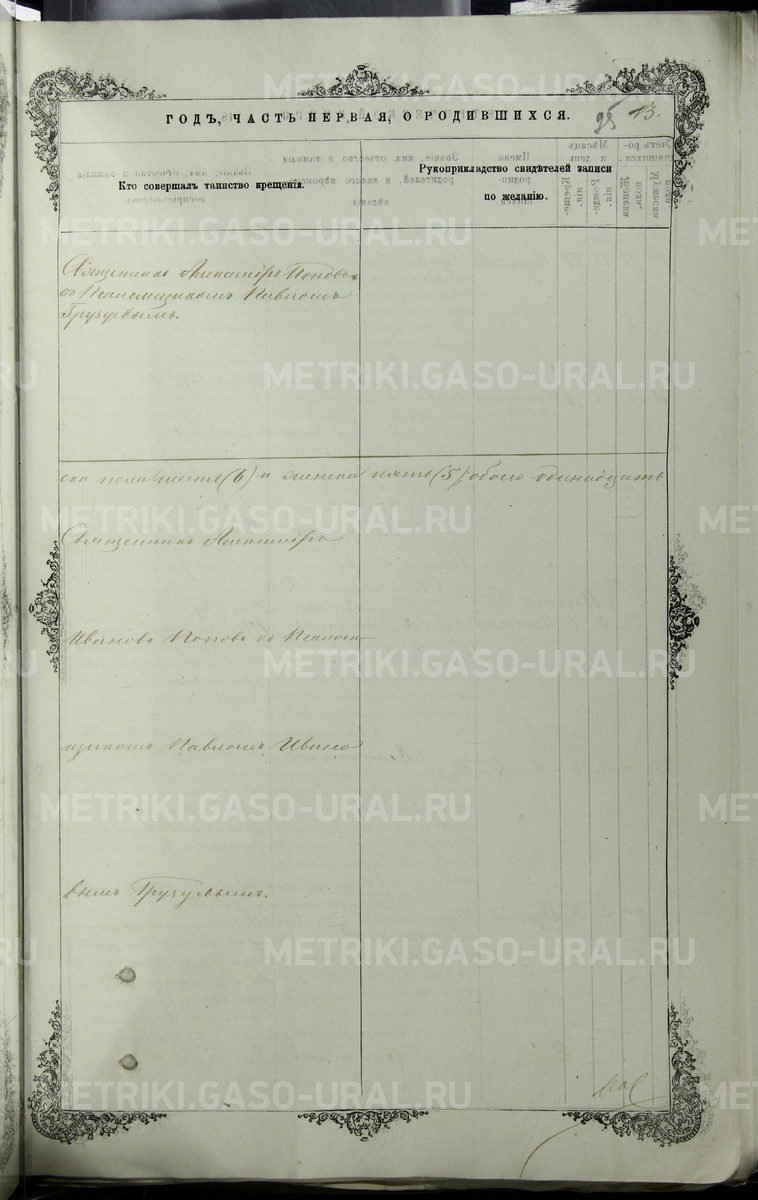 ГОДЪ, ЧАСТЬ ПЕРВАЯ, О РОДИВШИХСЯ.
95 13.
Кто совершалъ таинство крещенія.
Рукоприкладство свидѣтелей записи
по желанію.
Священникъ Александръ Поповъ
съ Псаломщикомъ Павломъ
Грузуевымъ.
ска пола шесть (6) и женска пять (5), обоего одинадцать
Священникъ Александръ
Ивановъ Поповъ съ Псалом-
щикомъ Павломъ Ивано
вымъ Грузуевымъ.
METRIKI.GASO-URAL.RU